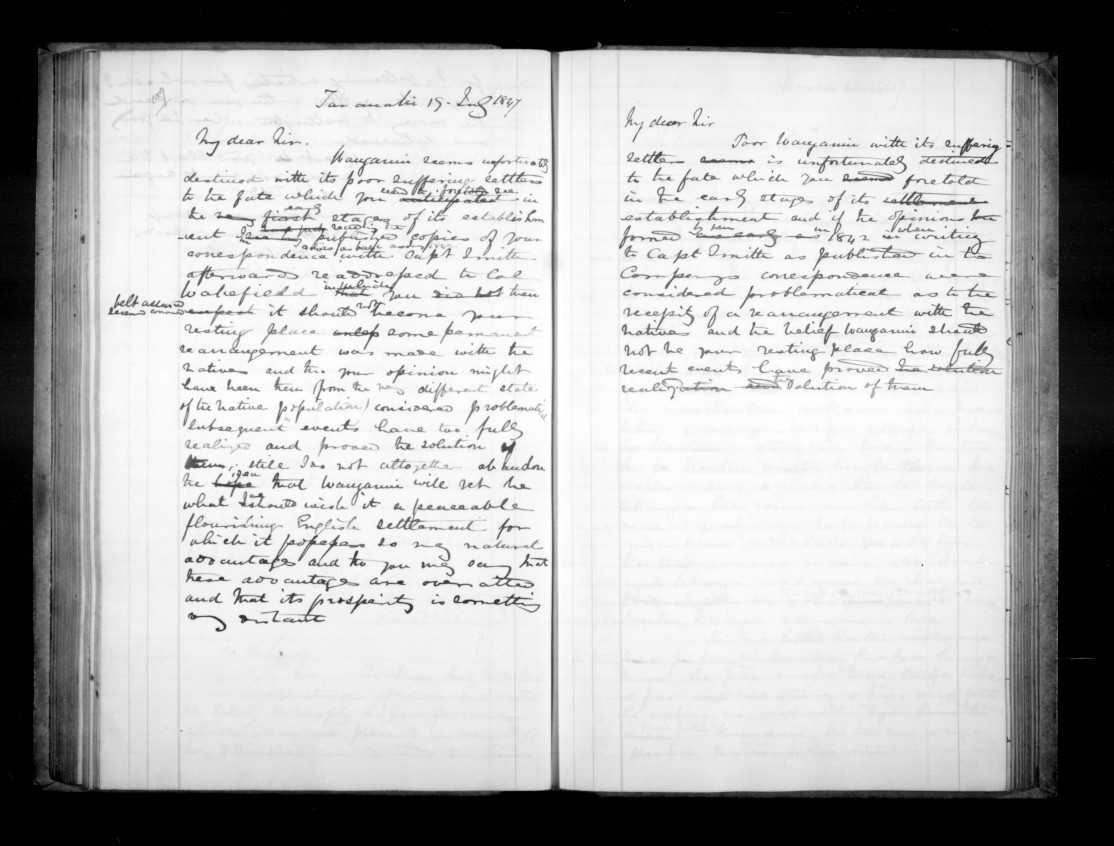 Taranaki 19. July 1847
My dear Sir.
Wanganui seems unfortunately
destined with its poor suffering settlers
used to foretold see
to the fate which you anticipated in
early
the very first stages of its establishm
ent I published copies of your
correspondence with Capt Smith
afterwards readdressed to Col
Wakefield that you did not then
felt assured
suspect it should not become your
resting place unless some permanent
rearrangement was made with the
natives and tho your opinion might
have been then (from the very different state
of the native population) considered problematical
subsequent events have too fully
realized and proved the solution of
them; still I do not altogether abandon
idea
the hope that Wanganui will yet be
we
what I should wish it a peaceable
flourishing English settlement for
which it possesses so many natural
advantages and tho you may say that
these advantages are overratted
and that its prosperity is something
very distant
My dear Sir
Poor Wanganui with its suffering
settlers seems is unfortunately destined
to the fate which you seemed foretold
in the early stages of its settlement
establishment and if the opinions
formed as early as 1842 when in writing
to Capt Smith as published in the
Companys correspondence were
considered problematical as to the
necessity of a rearrangement with the
natives and the belief Wanganui should
not be your resting place how fully
recent events have proved the solution
realization and solution of them